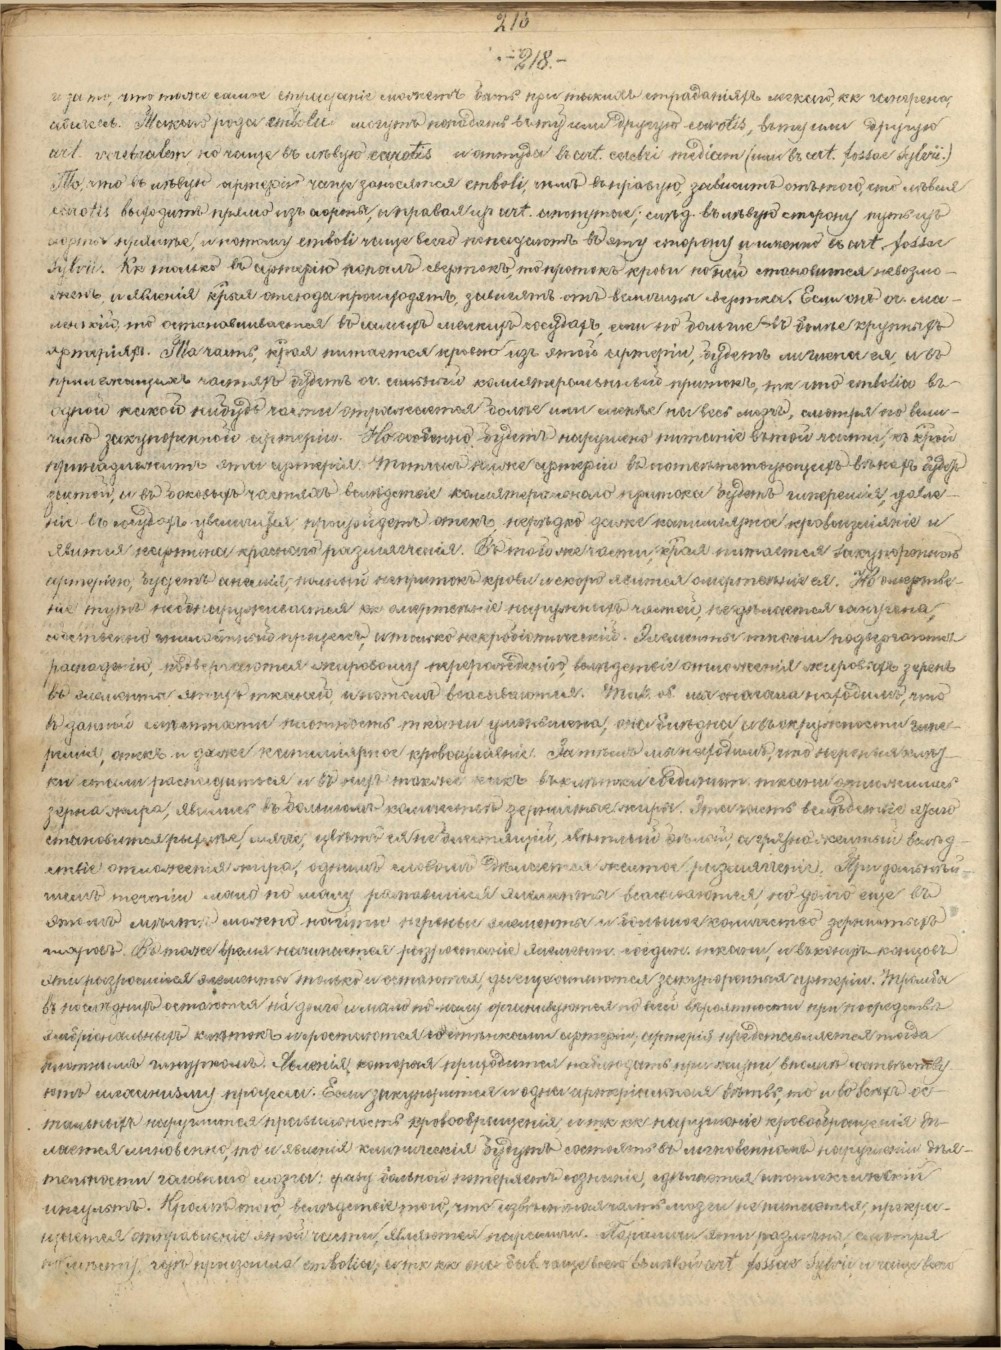 213
-218.-
и за то, что тоже самое страданіе можетъ быть при такихъ страданіяхъ легкаго, кк гангрена,
абсцесъ. Такого рода emboli могутъ попадать въ ту или другую carotis, въ ту или другую
art. vertebralem но чаще въ лѣвую carotis и оттуда въ art. cerebri mediam (или въ art. fossae Sylvii.)
То, что въ лѣвую артерію чаще заносятся emboli, чѣмъ въ правую, зависитъ отъ того, что лѣвая
carotis выходитъ прямо изъ аорты, а правая изъ art. anonymae; слѣд. въ лѣвую сторону путь изъ
аорты прямѣе, и потому emboli чаще всего попадаютъ въ эту сторону и именно въ art. fossae
Sylvii. Кк только въ артерію попалъ свертокъ, то протокъ крови по ней становится невозмо-
женъ, и явленія к҃рыя отсюда произойдутъ, зависятъ отъ величины свертка. Если онъ оч. ма-
ленькій, то останавливается въ самыхъ мелкихъ сосудахъ, если но больше - въ болѣе крупныхъ
артеріяхъ. Та часть, к҃рая питается кровью изъ этой артеріи, будетъ лишена ея, и въ
прилежащихъ частяхъ будетъ оч. сильный коллятеральный притокъ, тк что embolia въ
одной какой нибудь части отражается болѣе или менѣе на весь мозгъ, смотря по вели-
чинѣ закупоренной артеріи. Но особенно будетъ нарушено питаніе въ той части, къ к҃рой
принадлежитъ эта артерія. Тотчасъ ниже артеріи въ
и въ боковыхъ частяхъ вслѣдствіе коллятеральнаго притока будетъ гиперемія, давле-
ніе въ сосудахъ увеличится, произойдетъ отекъ, нерѣдко даже капиллярное кровоизліяніе и
явится картина краснаго размягченія. Въ той же части, к҃рая питается закупоренною
артеріею, будетъ анемія, полный непритокъ крови и скоро явится омертвеніе ея. Но омертве-
ніе тутъ не обнаруживается кк омертвеніе наружныхъ частей, не дѣлается гангрена,
собственно гнилостный процессъ, а только некробіотическій. Элементы ткани подвергаются
распаденію, подвергаются жировому перерожденію, вслѣдствіе отложенія жировыхъ зеренъ
въ элементы этихъ тканей, и потомъ всасываются. Так. об. мы сначала находимъ, что
въ данной плотность ткани уменьшена, она блѣдна, а въ окружности гипе-
ремія, отекъ и даже капиллярное кровоизліяніе. Затѣмъ мы находимъ, что нервныя клѣт-
ки стали распадаться и въ нихъ также какъ въ клѣткахъ соединит. ткани отложились
зерна жира, явились въ большомъ количествѣ зернистые шары. Эта часть вслѣдствіе этого
становится рыхлѣе, мягче, цвѣтъ ея не блестящій, молочный бѣлый, а грязно желтый вслѣд-
ствіе отложенія жира, однимъ словомъ дѣлается желтое размягченіе. При дальнѣй-
шемъ теченіи мало по малу распавшіеся элементы всасываются, но долго еще въ
этомъ мѣстѣ можно найти нервные элементы и большое количество зернистыхъ
шаровъ. Въ тоже время начинается разростаніе элемент. соедин. ткани, и въ концѣ концовъ
эти разросшіеся элементы только и остаются, гдѣ существуютъ закупоренныя артеріи. Тромбы
въ послѣднихъ остаются на долго и мало по малу организуются по всей вѣроятности при посредствѣ
эмбріональныхъ клѣтокъ и сростаются со стѣнками артеріи, артерія представляется тогда
плотнымъ шнуркомъ. Явленія, которыя приходится наблюдать при жизни вполнѣ соотвѣтству-
ютъ механизму процесса. Если закупорится и одна артеріальная вѣтвь, то и во всѣхъ ос-
тальныхъ нарушится правильность кровообращенія, и тк кк нарушеніе кровообращенія дѣ-
лается мгновенно, то и явленія клиническія будутъ состоять въ мгновенномъ нарушеніи дѣя-
тельности головного мозга: сразу больной потеряетъ сознаніе, сдѣлается апоплексическій
инсультъ. Кромѣ того, вслѣдствіе того, что извѣстная часть мозга не питается, прекра-
щается отправленіе этой части, являются параличи. Параличи эти различны, смотря
по мѣсту, гдѣ произошла embolia, и тк кк она быв. чаще всего въ лѣвой art. fossae Sylvii, и чаще всего